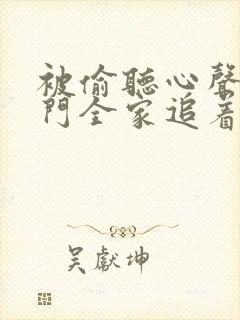 被偷聽心聲
門全家追着
吳獻坤